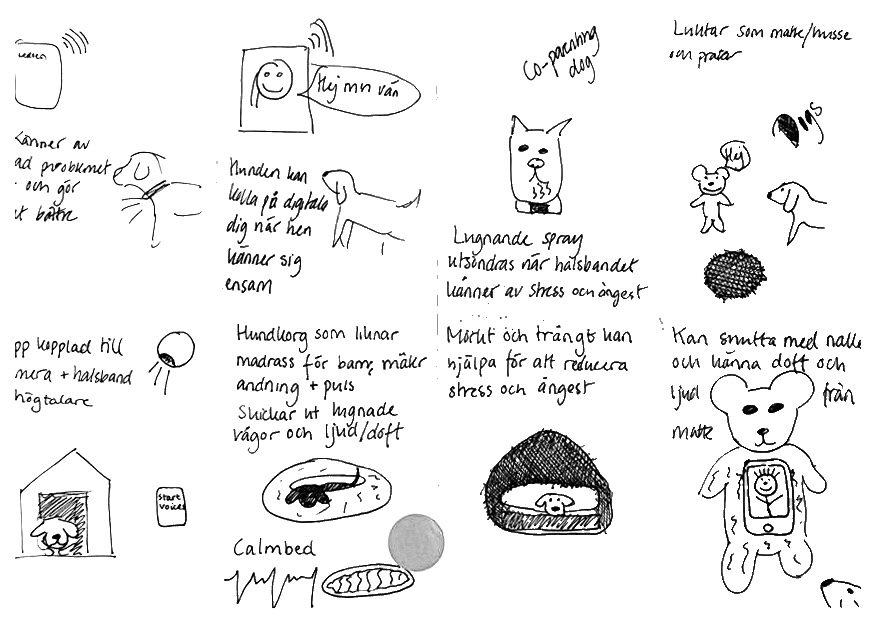 Co-parenting
dog
Luktar som matte/husse
och pratar
Hej min vän
Känner av
ad problemet
och gör
t bättre
Hunden kan
kolla på digitala
dig när hen
känner sig
ensam
Lugnande spray
utsöndras när halsbandet
känner av stress och ångest
Hej
pp kopplad till
mera + halsband
högtalare
Hundkorg som liknar
madrass för barn, mäter
andning + puls
Skickar ut lugnade
vågor och ljud/doft
Mörkt och trångt kan
hjälpa för att reducera
stress och ångest
Kan snutta med nalle
och känna doft och
ljud från
matte
Start
voices
Calmbed